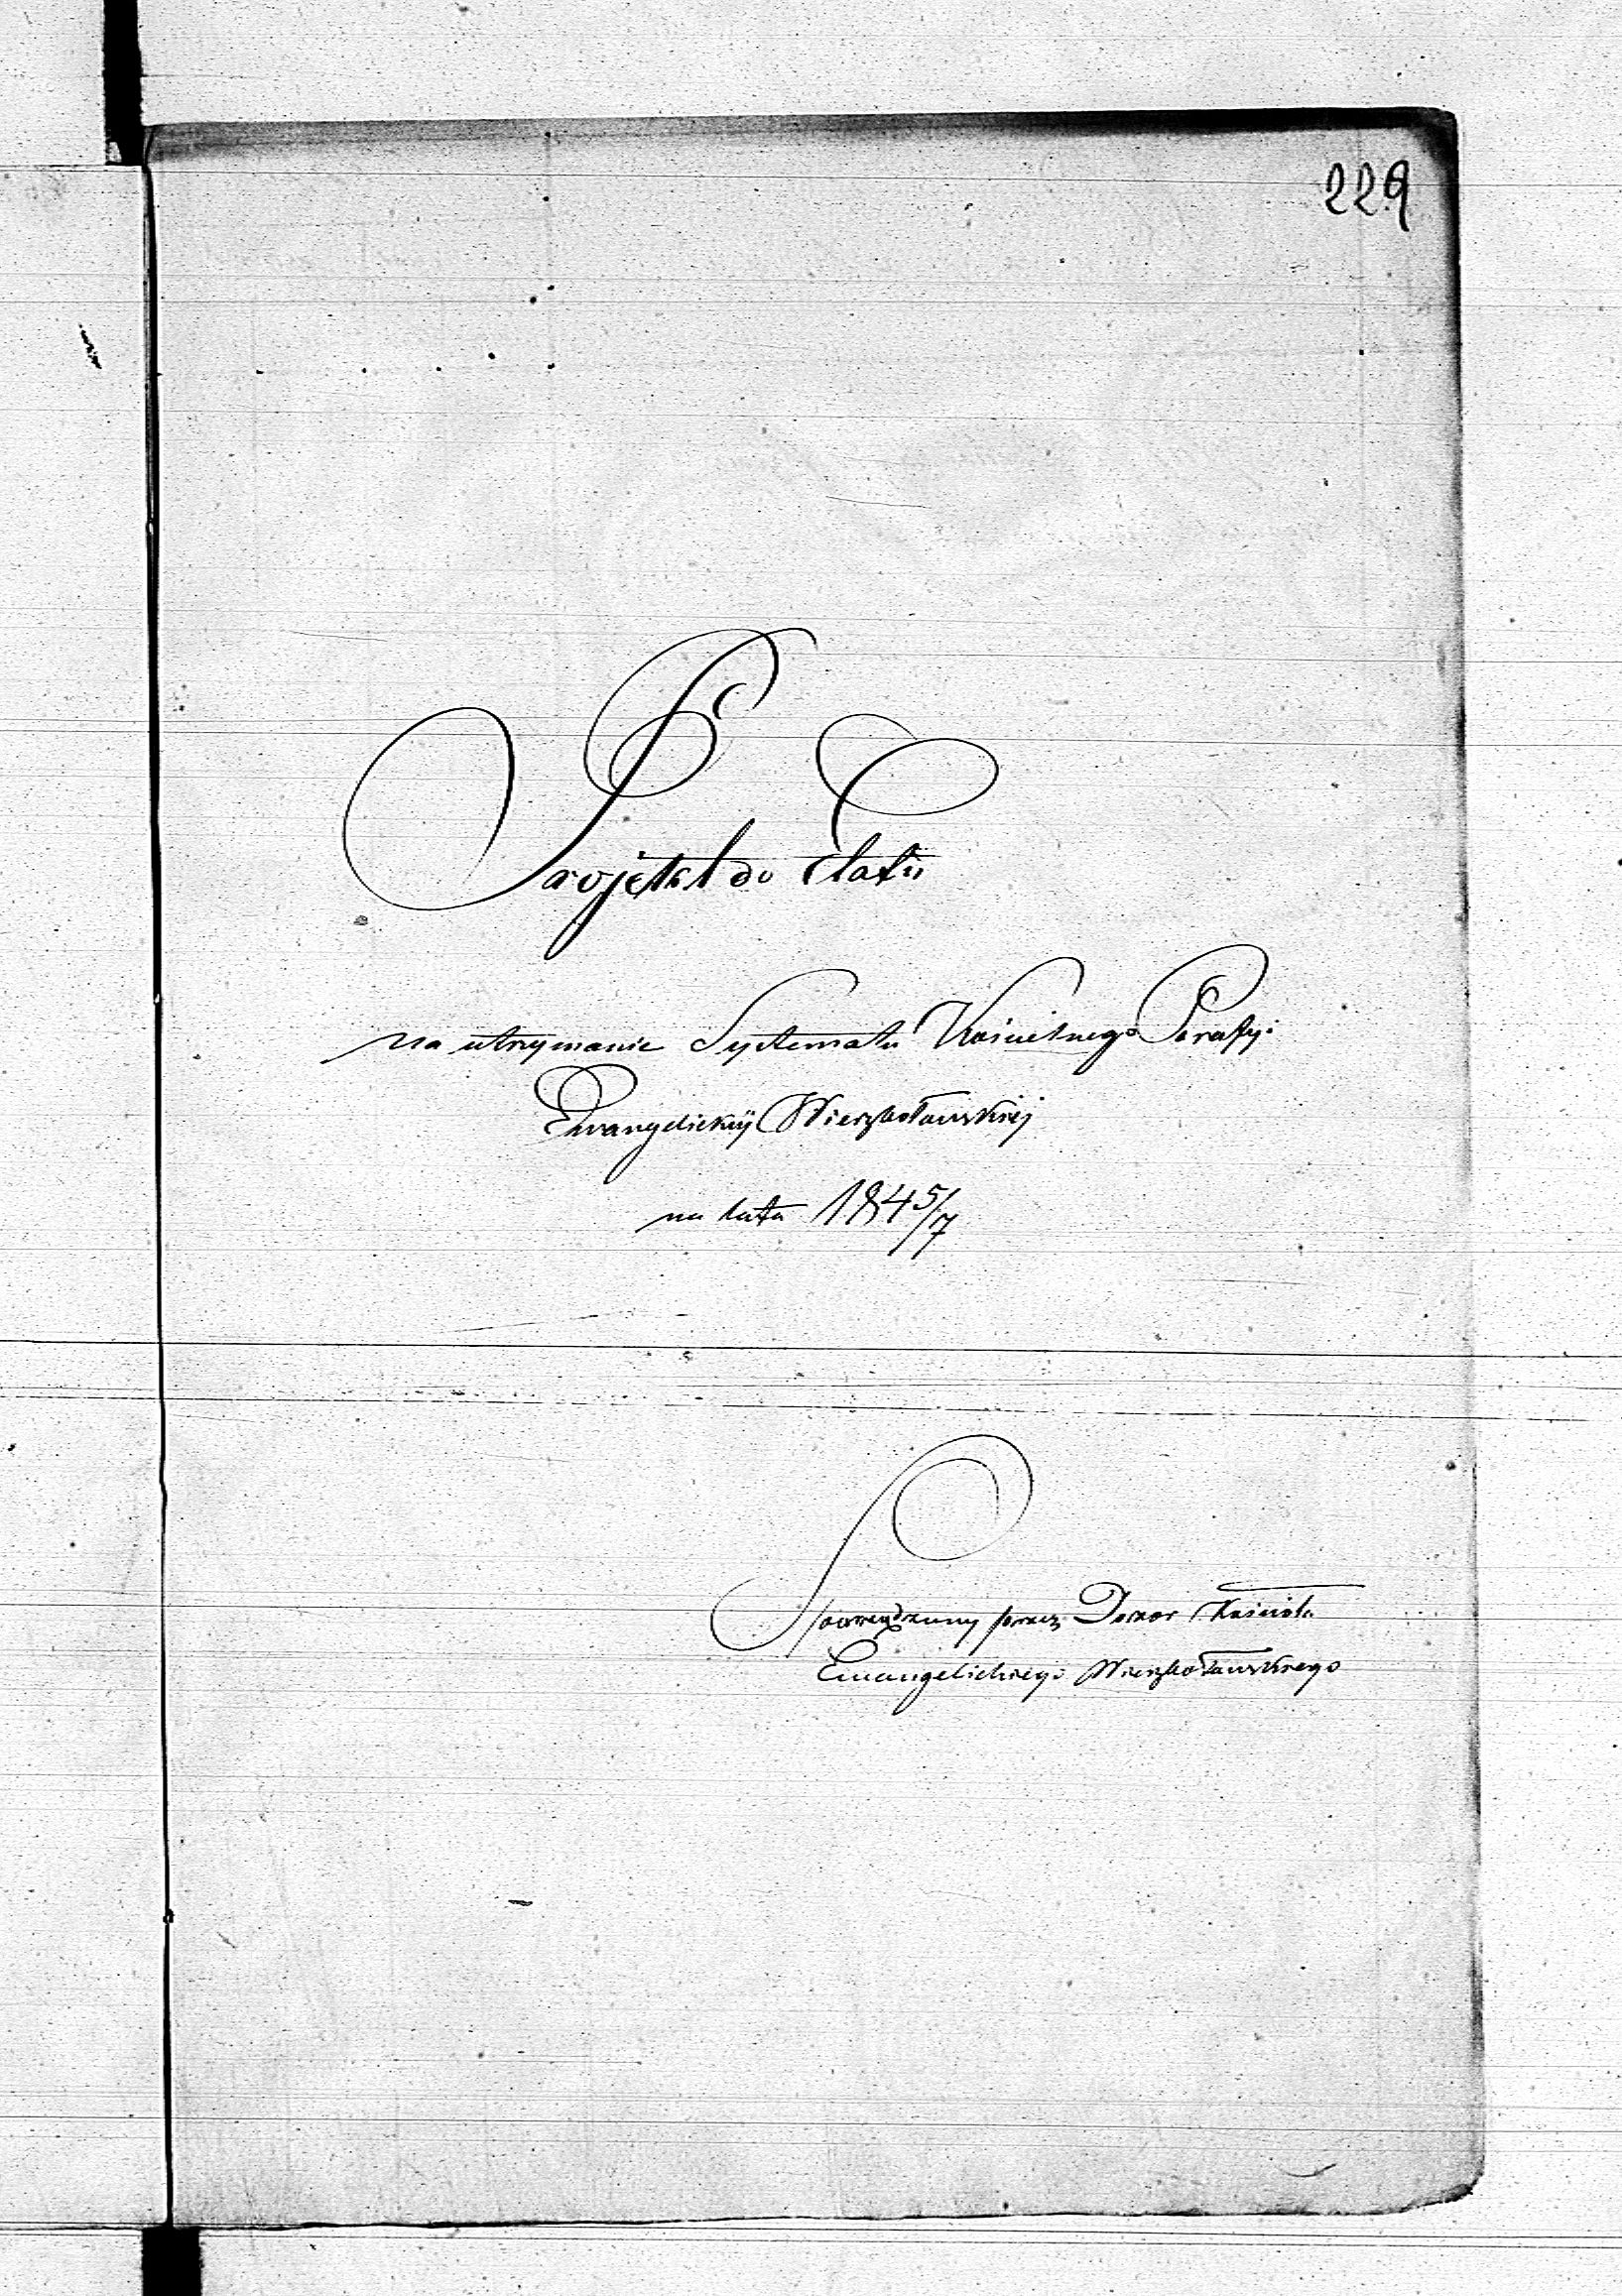 229
Projekt do Etatu
na utrzymanie Systematu Kościelnego Parafyi
Ewangelickiéj Wierzbołowskiéj
na lata 1845/7
Sporządzony przez Dozor Kościoła
Ewangelickiego Wierzbołowskiego